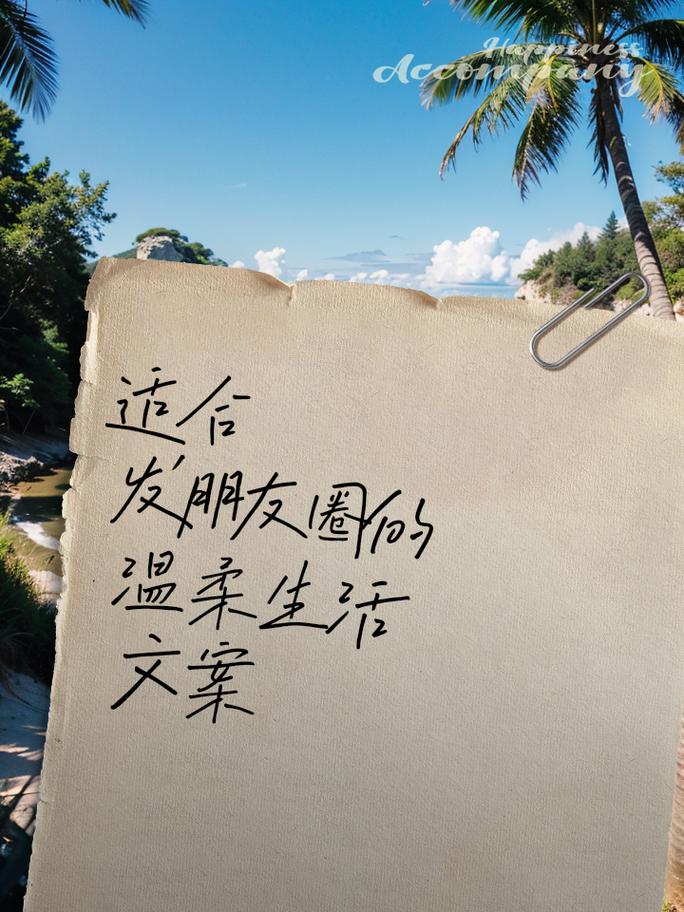 Happiness
Accompany
适合
发朋友圈的
温柔生活
文案